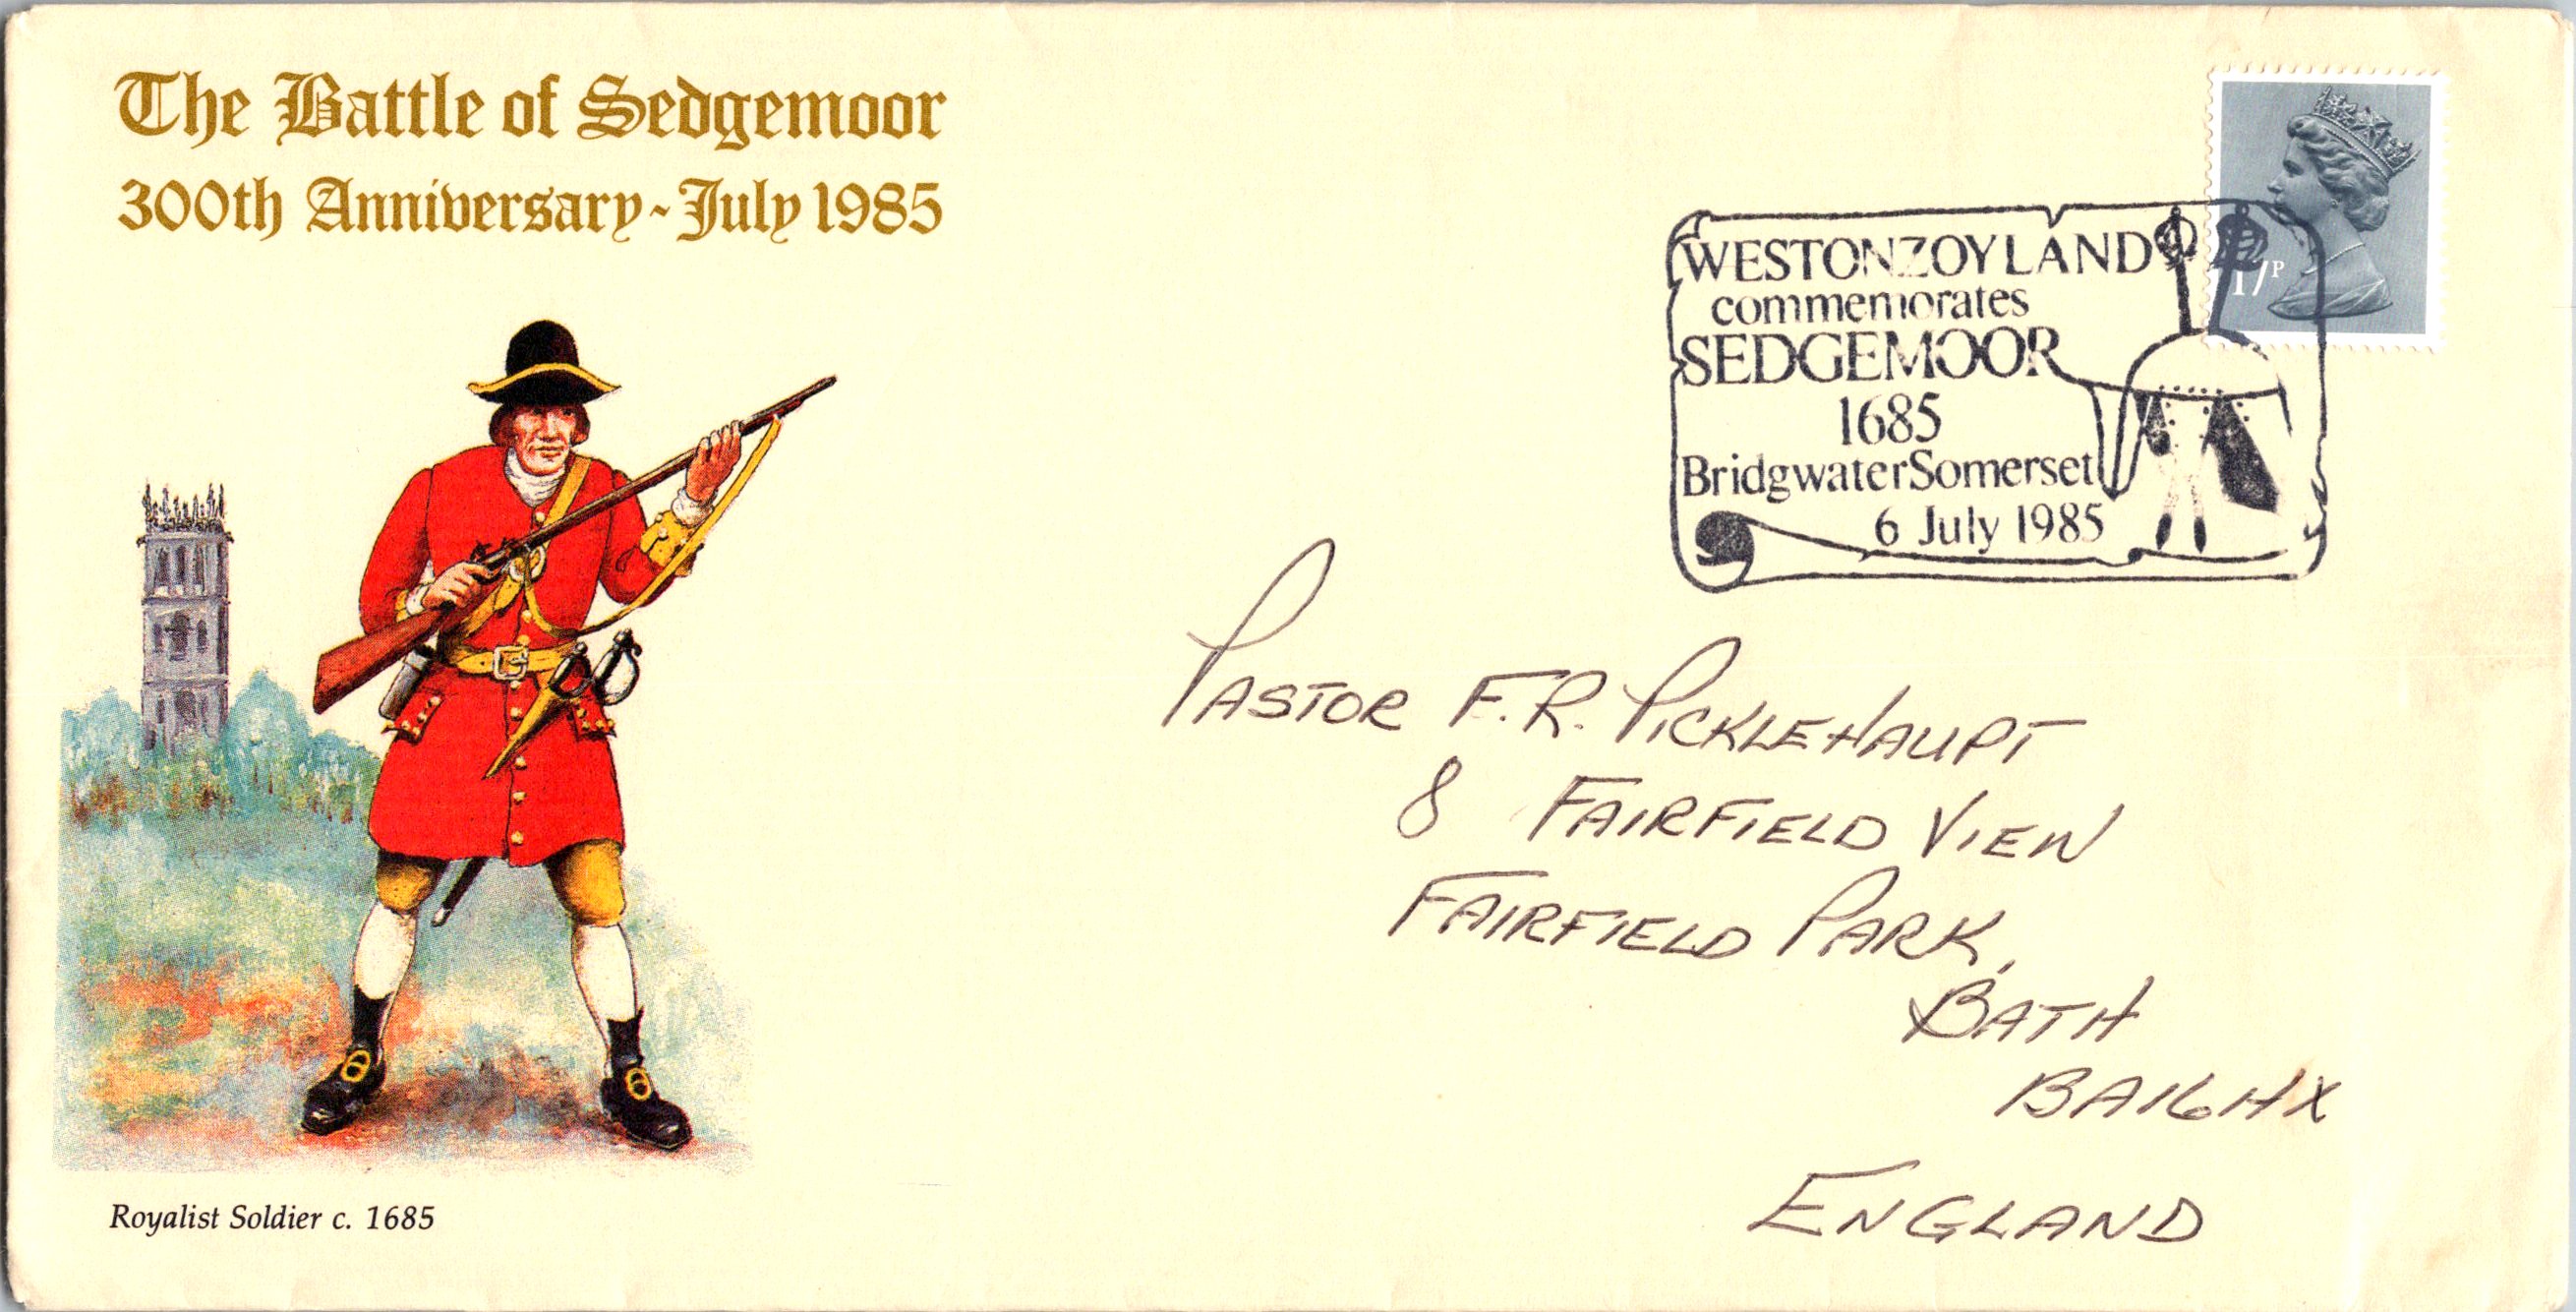 The Battle of Sedgemoor
300th Anniversary - July 1985
17P
WESTONZOYLAND
commemorates
SEDGEMOOR
1685
Bridgwater Somerset
6 July 1985
PASTOR F.R. PICKLEHAUPT
8 FAIRFIELD VIEW
FAIRFIELD PARK,
BATH
BA16HX
ENGLAND
Royalist Soldier c. 1685